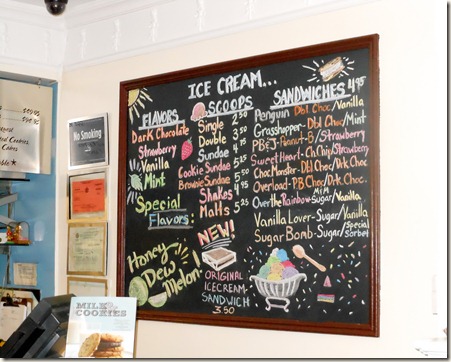 ICE CREAM...
FLAVORS
Dark Chocolate
Strawberry
Vanilla
Mint
Special
Flavors:
Honey
Dew
Melon
SCOOPS
Single 2.50
Double 3.50
Sundae 4.75
Cookie Sundae 5.50
Brownie Sundae 5.50
Shakes 4.95
Malts 5.25
NEW!
ORIGINAL
ICECREAM
SANDWICH
3.50
SANDWICHES 4.95
Penguin Dbl Choc/Vanilla
Grasshopper-Dbl Choc/Mint
PB&J-Peanut-B/Strawberry
Sweet Heart-Ch.Chip/Strawberry
Choc Monster-DBl Choc/Drk.Choc
Overload-PB Choc/Drk.Choc
Over the Rainbow-M&M Sugar/Vanilla
Vanilla Lover-Sugar/Vanilla
Sugar Bomb-Sugar/Special Sorbet
No Smoking
MILK &
COOKIES